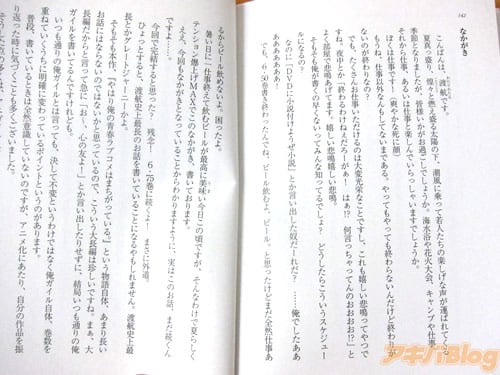 142
なかがき
こんばんは、渡航です。
夏真っ盛り、煌々と燃え盛る太陽の下、潮風に乗って若人たちの楽しげな声が運ばれてくる
季節となりましたが、皆様いかがお過ごしでしょうか。海水浴や花火大会、キャンプや仕事、
それから仕事、あるいは仕事と楽しんでいらっしゃいますでしょうか。
ぼくは仕事です！（爽やかな死に顔）
もうね、仕事以外なんもしてないまである。やってもやっても終わらないんだけど終わりが
ないのが終わりなの？
でも、たくさんお仕事いただけるのは大変光栄なことですし、これも嬉しい悲鳴ってやつで
すね。夜中とか「終わるわけねえだろーがぁー！はぁ⁉　何言っちゃってんのおおおお⁉」と
よく部屋で悲鳴あげてます。嬉しい悲鳴嬉しい悲鳴。
そもそも俺が書くの早くないってみんな知ってるでしょ？　どうしたらこういうスケジュー
なのに「DVDに小説付けようぜ小説」とか言い出した奴だーれだ？　……俺でしたああ
ああああああ！
でも、6・50巻書き終わったんでね、ビール飲むよ、ビール。と思ったけどまだ全然仕事あ
るからビール飲めないよ。困ったよ。
暑い日に一仕事終えて飲むビールが最高に美味い今日この頃ですが、そんなわけで夏らしく
テンション爆上げMAXでこのなかがき、書いております。
ええ、今回もなかがきとなっていることからわかりますように、実はこのお話、まだ続くん
ですよ……。
今回で完結すると思った？　残念！　6・75巻に続くよ！　まさに外道。
ひょっとすると、渡航史上最長のお話を書いていることになるやもしれません。渡航史上最
長とかグレートジャーニーかよ。
そもそも本作「やはり俺の青春ラブコメはまちがっている。」という物語自体、あまり長い
お話にはならないのではないかと思っているので、こういう大長編は珍しいですね。まぁ、大
長編だからと言って急に「おー、心の友よ！」とか言い出したりせずに、結局いつも通りの俺
ガイルを書いてるんですけれども。
いつも通りの俺ガイルと言っても、決して不変というわけではなく俺ガイル自体、巻数を
重ねていくうちに明確に変わっているポイントというのがあります。
普段、書いているときは全然意識していないのですが、アニメ化にあたり、自分の作品を振
り返った時に気づくことも多くございました。
アキバBlog